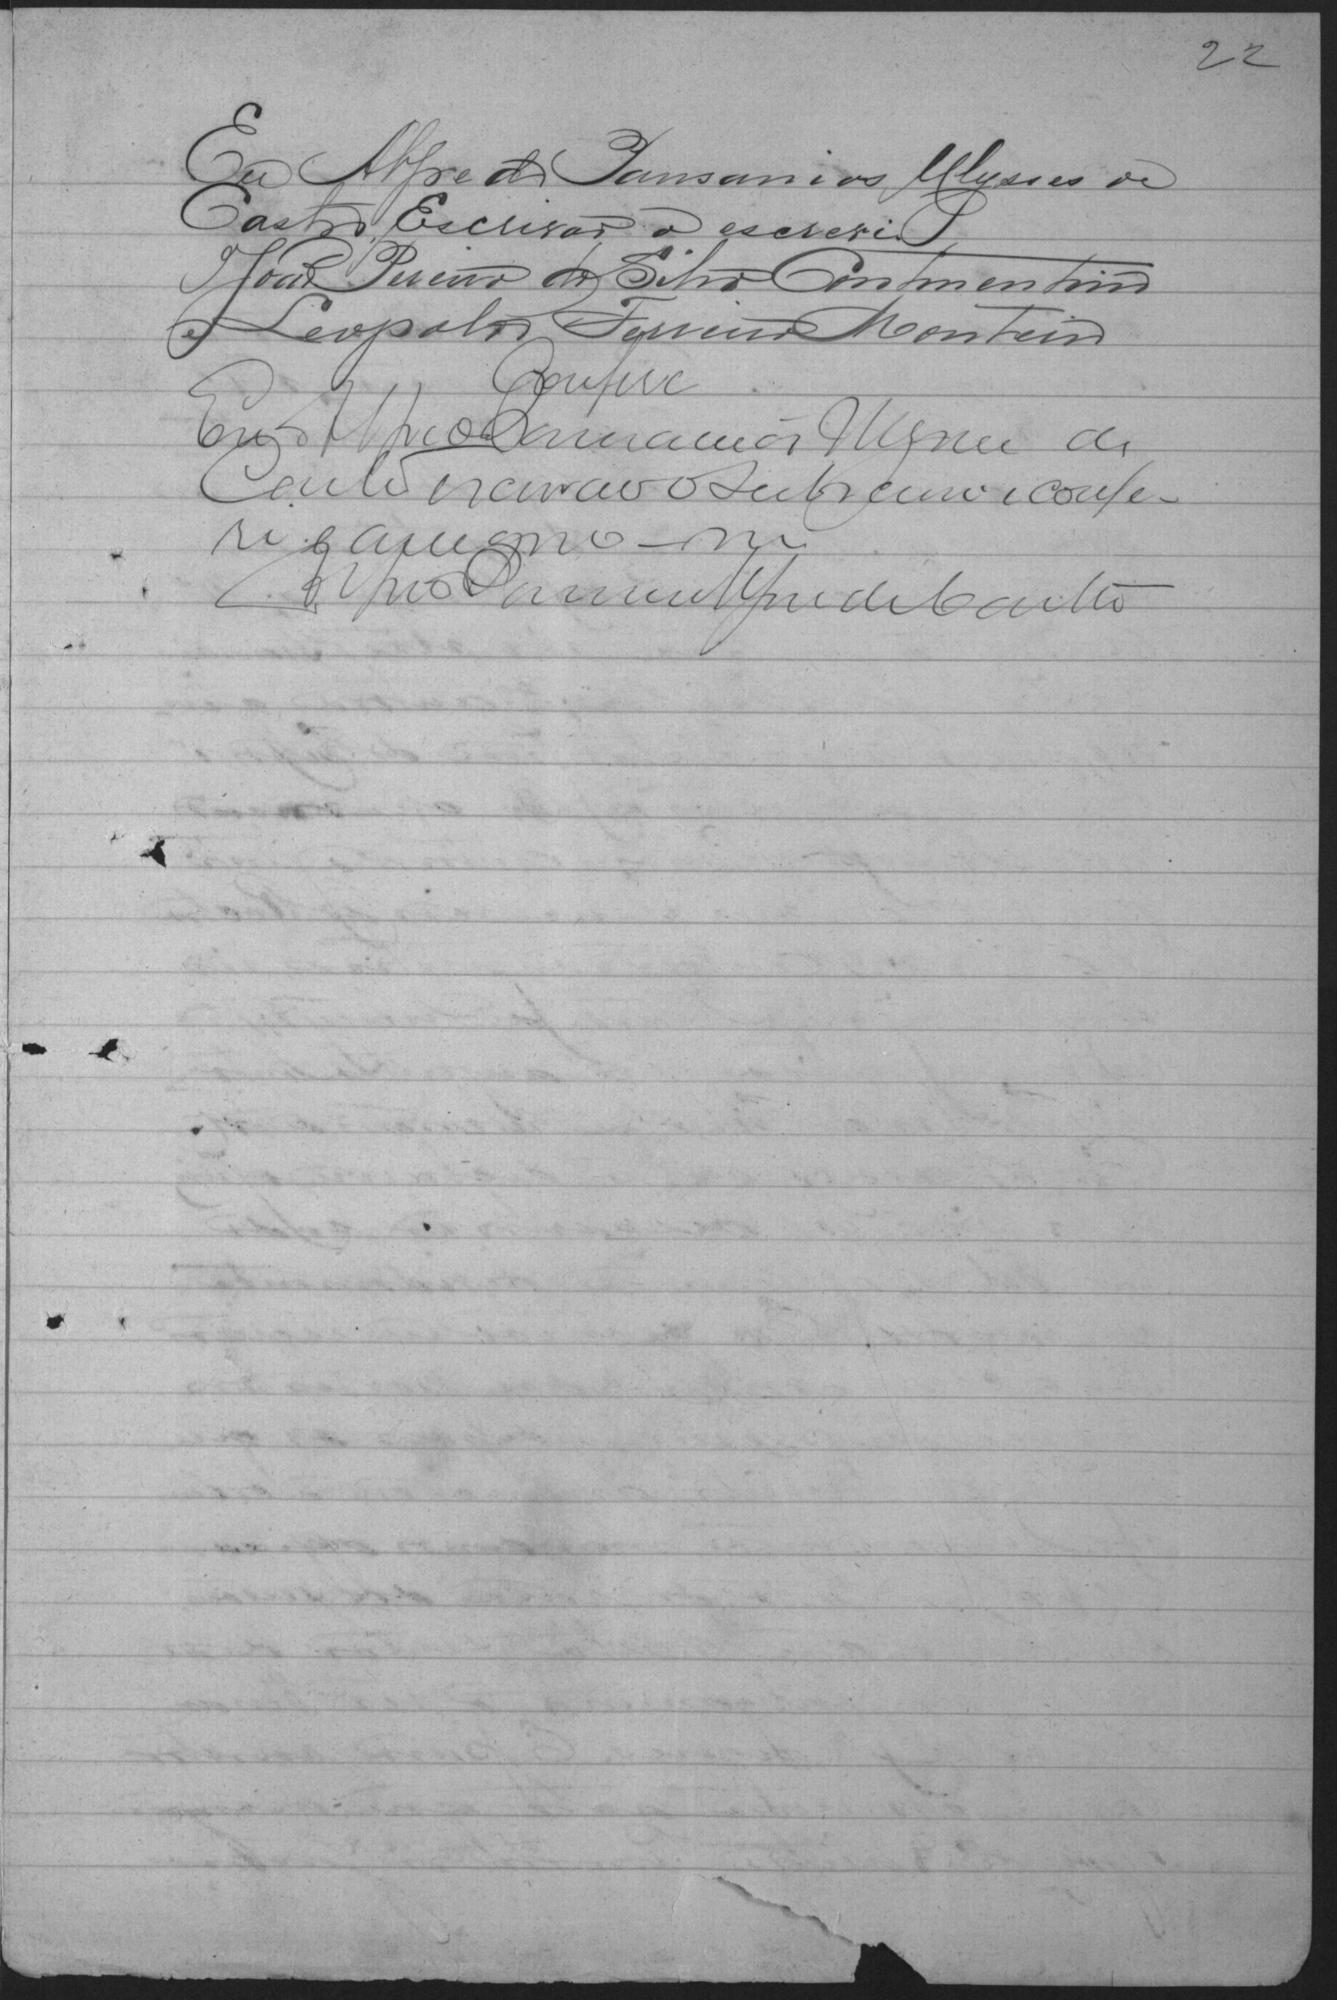 22
Eu Alfredo Pausanias Ulysses de
Castro, Escrivão o escrevi.
João Pereira da Silva Continentino
e Leopoldo Ferreira Monteiro
Confere
Eu, Alfredo Pausanias Ulysses de
Castro escrivão o subscrevo e confe-
ri e assigno-me
Alfredo Pausanias Ulysses de Castro